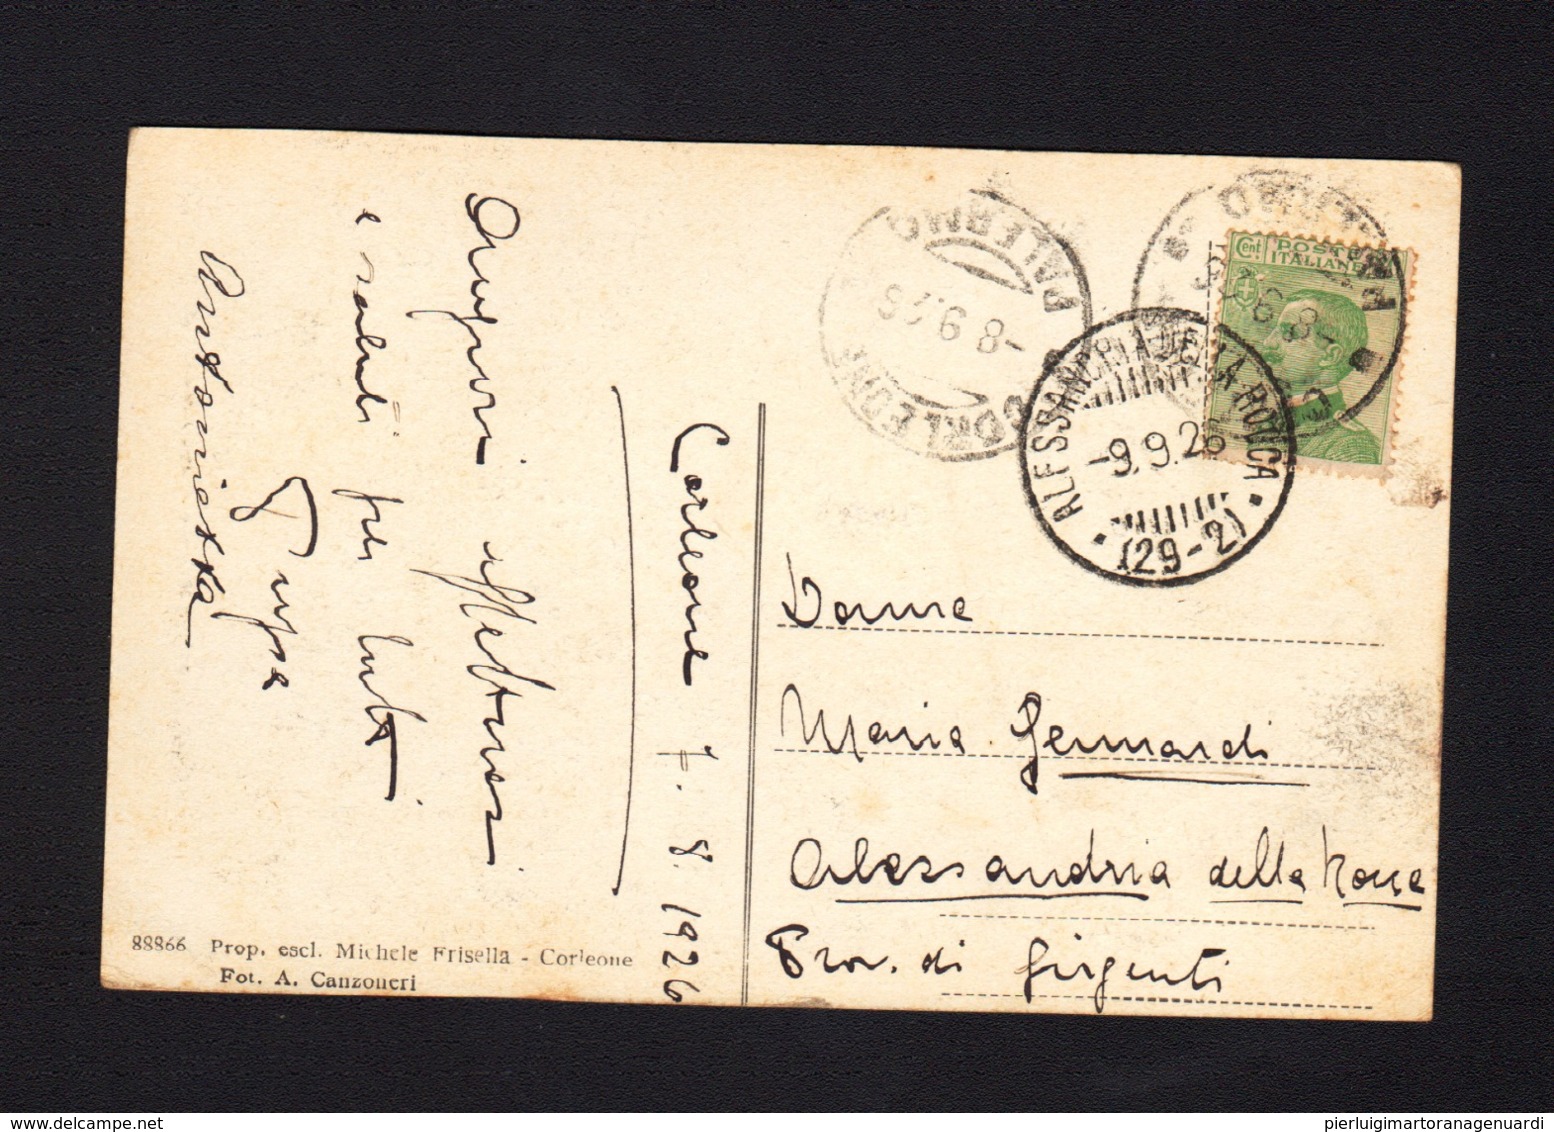 Auguri affettuosi
e saluti per tutti
Giuffra
Antonietta
Corleone 7.8.1926
88866 Prop. escl. Michele Frisella - Corleone
Fot. A. Canzoneri
PALERMO
-8 9.26
CORLEONE
Cent.
POSTE
ITALIANE
PALERMO
-8.9.26
ALESSANDRIA DELLA ROCCA
-9.9.26
(29-2)
Donna
Maria Gennardi
Alessandria della Rocca
Prov. di Girgenti
pierluigimartoranagenuardi